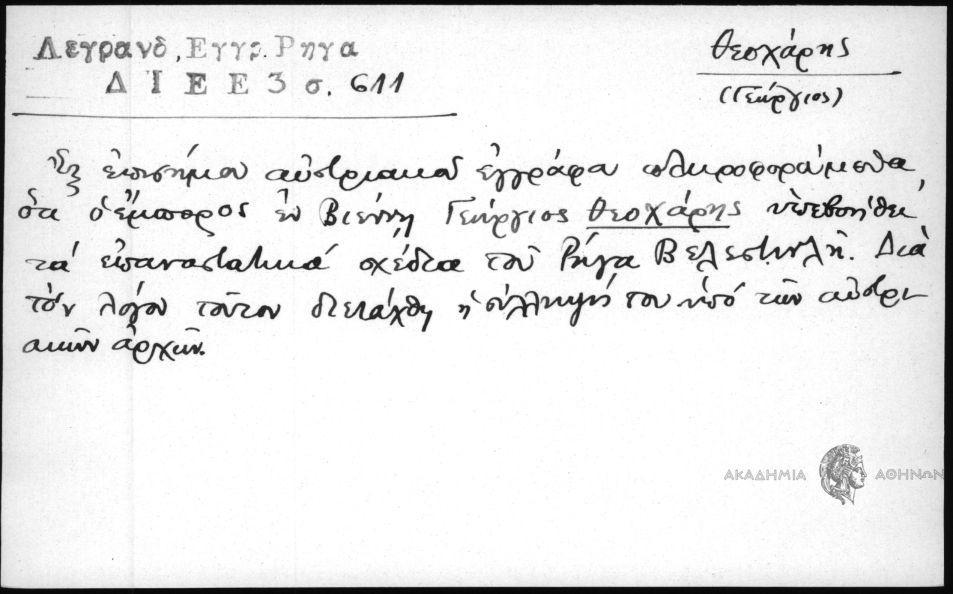 Λεγρανδ, Εγγρ. Ρηγα
Δ Ι Ε Ε 3 σ. 611
Θεοχάρης
(Γεώργιος)
Ἐξ ἐπισήμου αὐστριακοῦ ἐγγράφου πληροφορούμεθα
ὅτι ὁ ἔμπορος ἐν Βιέννῃ Γεώργιος Θεοχάρης ὑπεβοήθει
τά ἐπαναστατικά σχέδια τοῦ Ρήγα Βελεστινλῆ. Διὰ
τόν λόγον τοῦτον διετάχθη ἡ σύλληψή του ὑπό τῶν αὐστρι
ακῶν ἀρχῶν.
ΑΚΑΔΗΜΙΑ ΑΘΗΝΩΝ